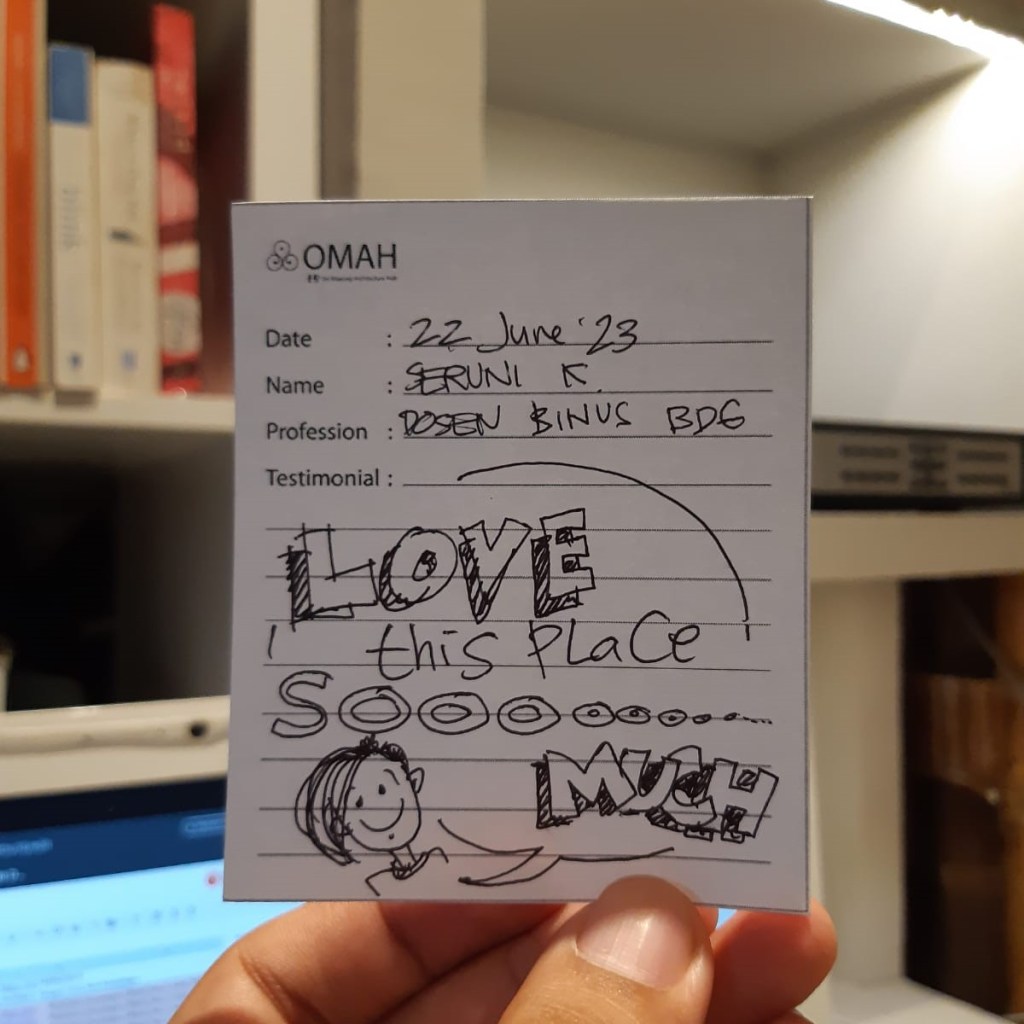 OMAH
Date : 22 June '23
Name : SERUNI K.
Profession : DOSEN BINUS BDG
Testimonial :
LOVE
this PLaCe
SOOOooooo...
MUCH